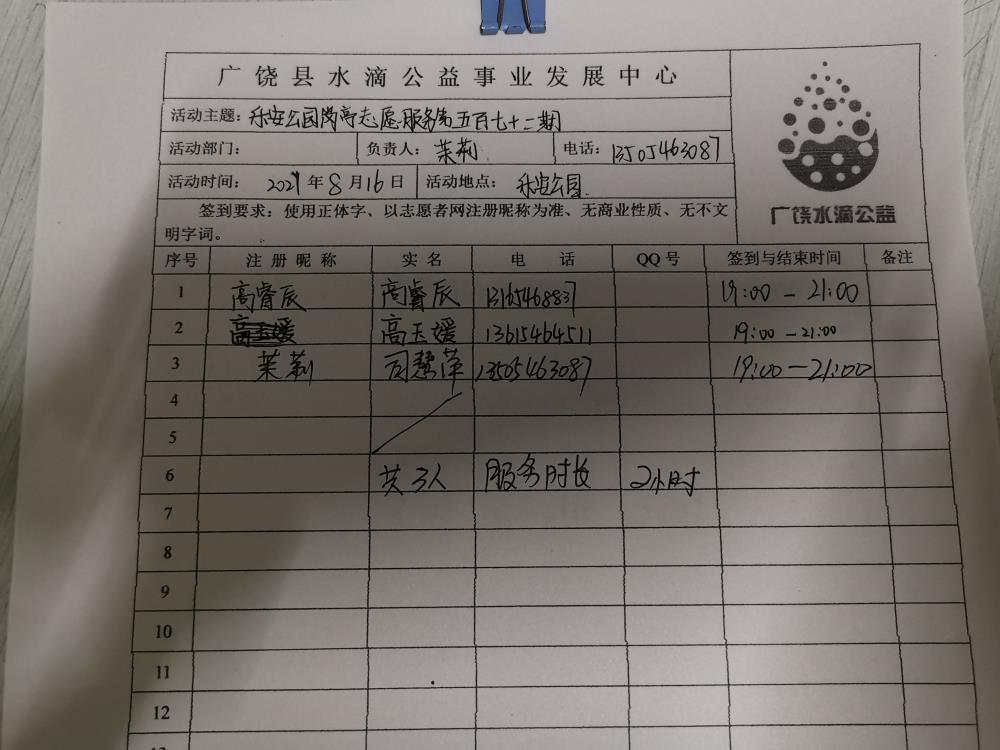 广饶县水滴公益事业发展中心
活动主题：乐安公园岗亭志愿服务第五百七十二期
活动部门： 负责人：茉莉 电话：13505463087
活动时间：2021年8月16日 活动地点：乐安公园
签到要求：使用正体字、以志愿者网注册昵称为准、无商业性质、无不文
明字词。
广饶水滴公益
序号 注册昵称 实名 电话 QQ号 签到与结束时间 备注
1 高睿辰 高睿辰 13165468837 19:00-21:00
2 高玉媛 高玉媛 13615464511 19:00-21:00
3 茉莉 司慧萍 13505463087 19:00-21:00
4
5
6 共3人 服务时长 2小时
7
8
9
10
11
12
13